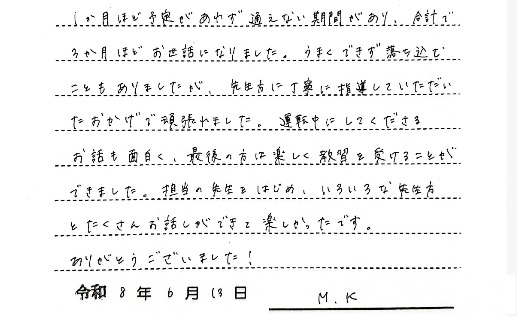 1か月ほど予定があわず通えない期間があり、合計で
3か月ほどお世話になりました。うまくできず落ち込む
こともありましたが、先生方に丁寧に指導していただい
たおかげで頑張れました。運転中にしてくださる
お話も面白く、最後の方は楽しく教習を受けることが
できました。担当の先生をはじめ、いろいろな先生方
とたくさんお話しができて楽しかったです。
ありがとうございました！
令和 8 年 6 月 13 日 M.K